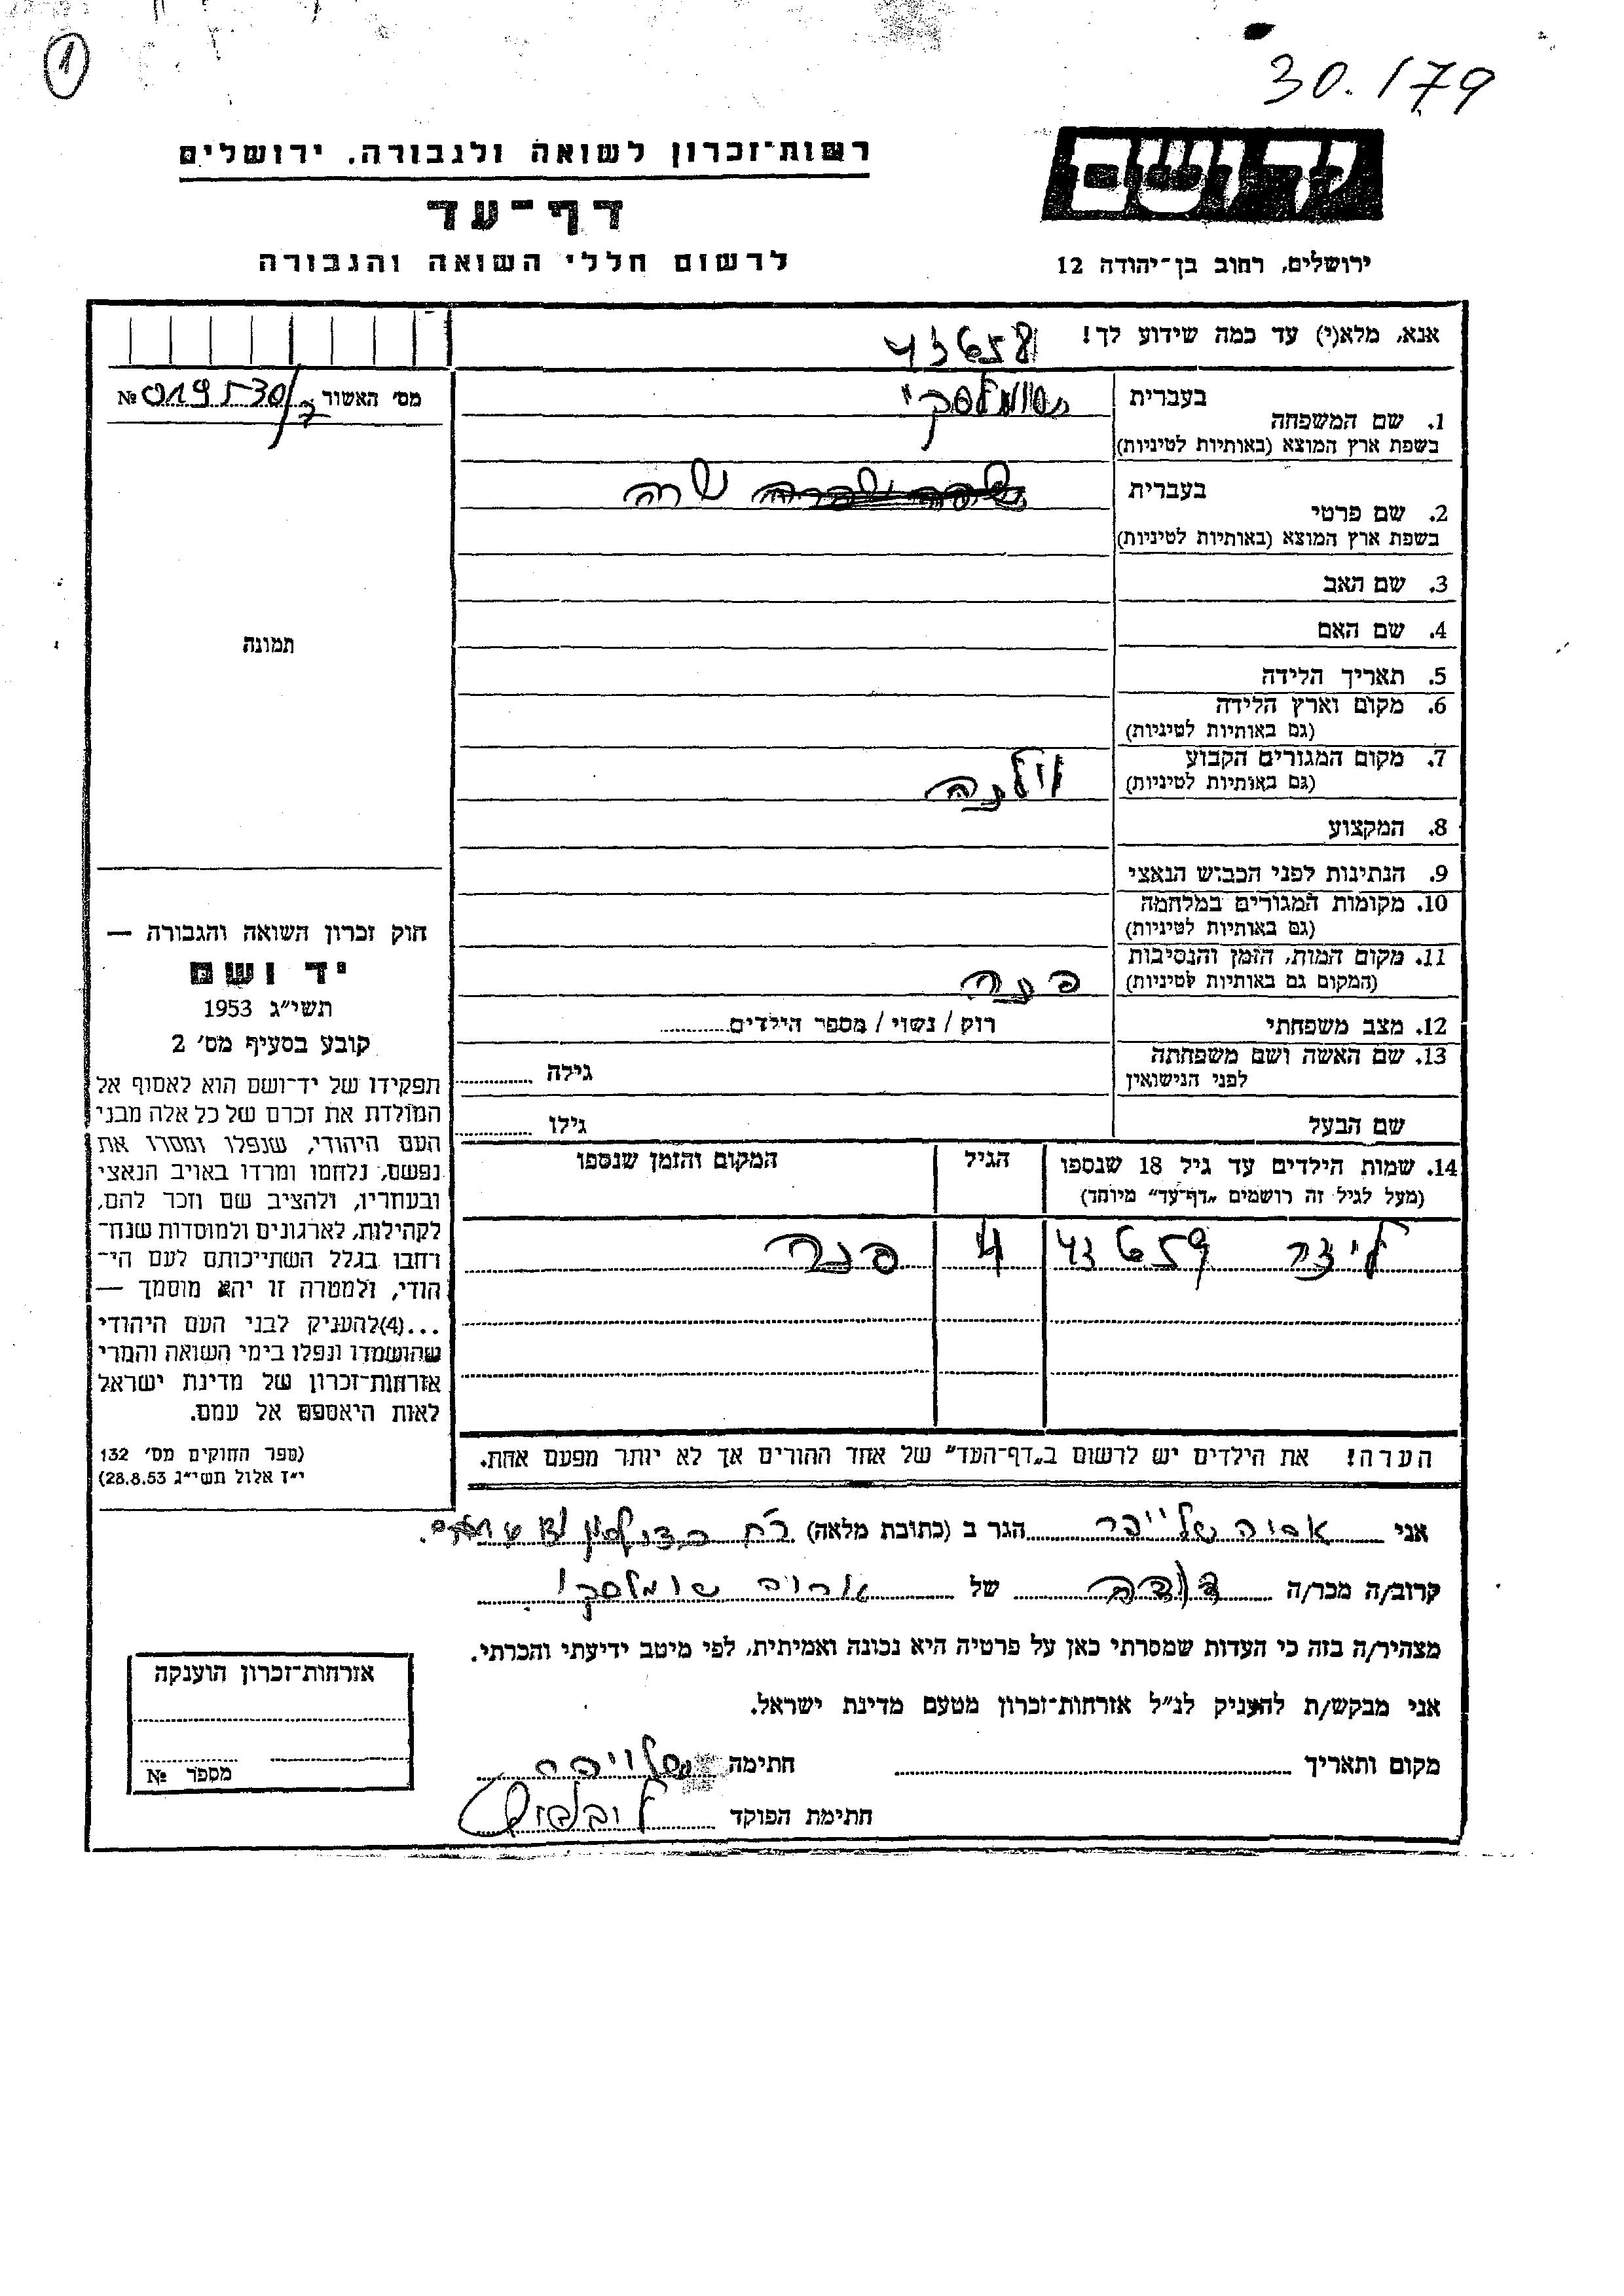 1
30.179
רשות־זכרון לשואה ולגבורה. ירושלים
דף־עד
לרשום חללי השואה והגבורה
יד ושם
ירושלים, רחוב בן־יהודה 12
אנא, מלא(י) עד כמה שידוע לך!
43658
מס׳ האשור № 019530/7
1. שם המשפחה
בעברית שומלסקי
בשפת ארץ המוצא (באותיות לטיניות)
2. שם פרטי
בעברית שרה
בשפת ארץ המוצא (באותיות לטיניות)
3. שם האב
4. שם האם
5. תאריך הלידה
6. מקום וארץ הלידה
(גם באותיות לטיניות)
7. מקום המגורים הקבוע
(גם באותיות לטיניות)
וילנה
8. המקצוע
9. הנתינות לפני הכבוש הנאצי
10. מקומות המגורים במלחמה
(גם באותיות לטיניות)
11. מקום המות, הזמן והנסיבות
(המקום גם באותיות לטיניות)
פנר
12. מצב משפחתי
רוק / נשוי / מספר הילדים
13. שם האשה ושם משפחתה
לפני הנישואין
גילה
שם הבעל
גילו
14. שמות הילדים עד גיל 18 שנספו
(מעל לגיל זה רושמים „דף־עד״ מיוחד)
הגיל
המקום והזמן שנספו
ליזר 43659 4 פנר
הערה! את הילדים יש לרשום ב„דף־העד״ של אחד ההורים אך לא יותר מפעם אחת.
תמונה
חוק זכרון השואה והגבורה —
יד ושם
תשי״ג 1953
קובע בסעיף מס׳ 2
תפקידו של יד־ושם הוא לאסוף אל
המולדת את זכרם של כל אלה מבני
העם היהודי, שנפלו ומסרו את
נפשם, נלחמו ומרדו באויב הנאצי
ובעוזריו, ולהציב שם וזכר להם,
לקהילות, לארגונים ולמוסדות שנח־
רחבו בגלל השתייכותם לעם הי־
הודי, ולמטרה זו יהא מוסמך —
...(4)להעניק לבני העם היהודי
שהושמדו ונפלו בימי השואה והמרי
אזרחות־זכרון של מדינת ישראל
לאות היאספם אל עמם.
(ספר החוקים מס׳ 132
י״ז אלול תשי״ג 28.8.53)
אני שלייפר הגר ב (כתובת מלאה) רח
קרוב/ה מכר/ה דודה של שומלסקי
מצהיר/ה בזה כי העדות שמסרתי כאן על פרטיה היא נכונה ואמיתית, לפי מיטב ידיעתי והכרתי.
אני מבקש/ת להעניק לנ״ל אזרחות־זכרון מטעם מדינת ישראל.
מקום ותאריך
חתימה שלייפר
חתימת הפוקד
אזרחות־זכרון הוענקה
מספר №